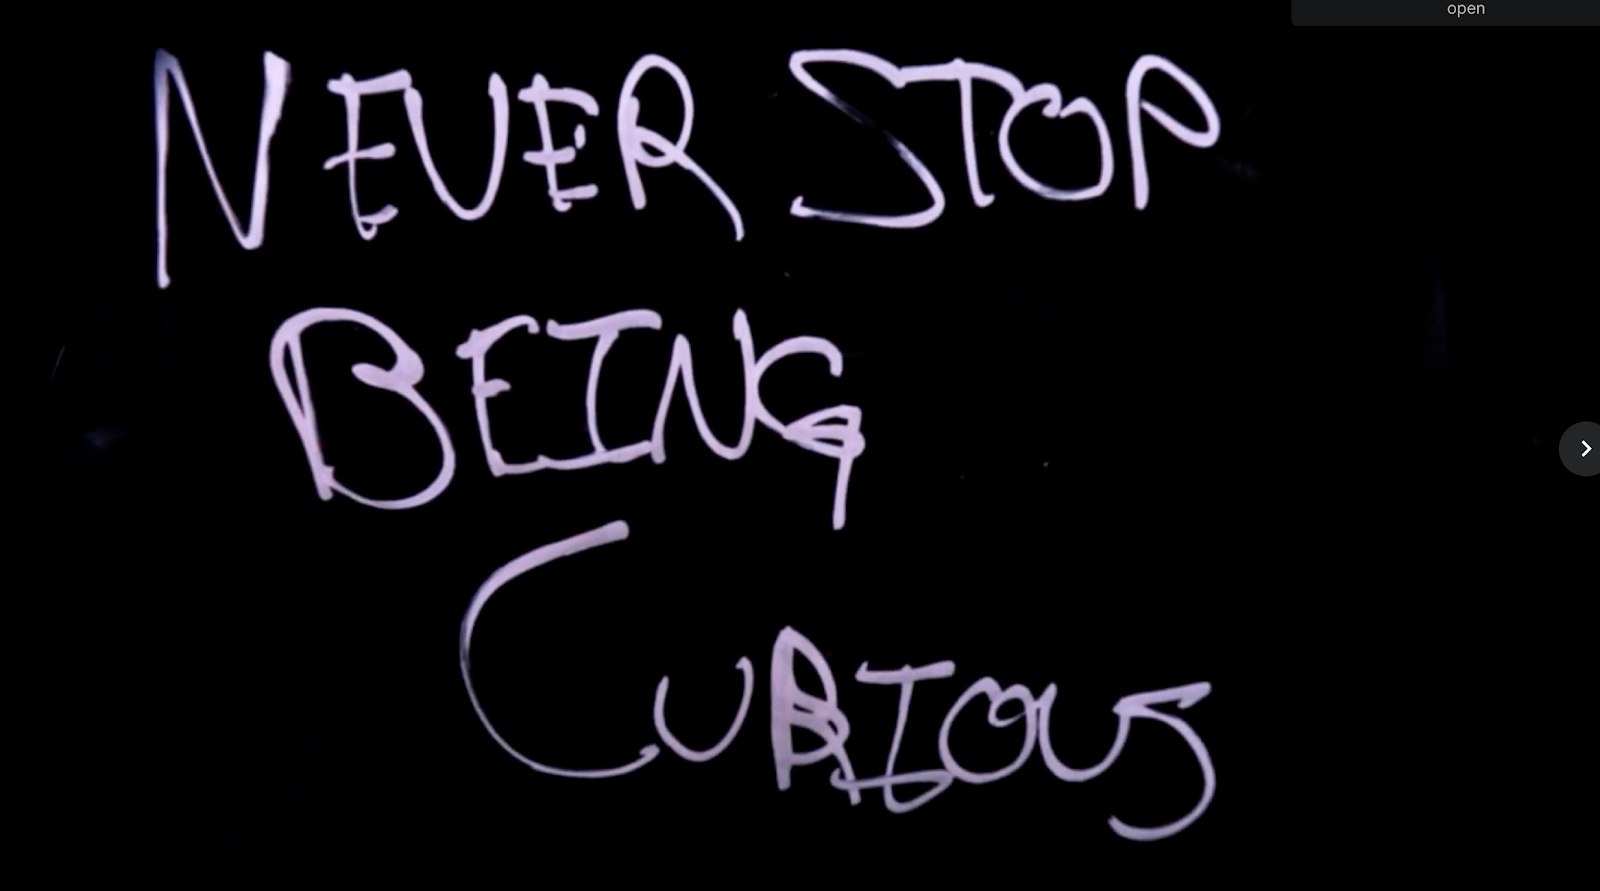 open
NEVER STOP
BEING
CURIOUS